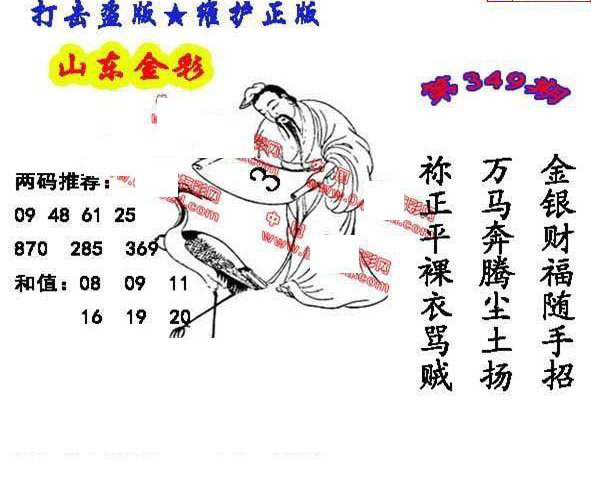 打击盗版★维护正版
山东金彩
第349期
两码推荐:
09 48 61 25
870 285 369
和值:08 09 11
16 19 20
3
金银财福随手招
万马奔腾尘土扬
祢正平裸衣骂贼